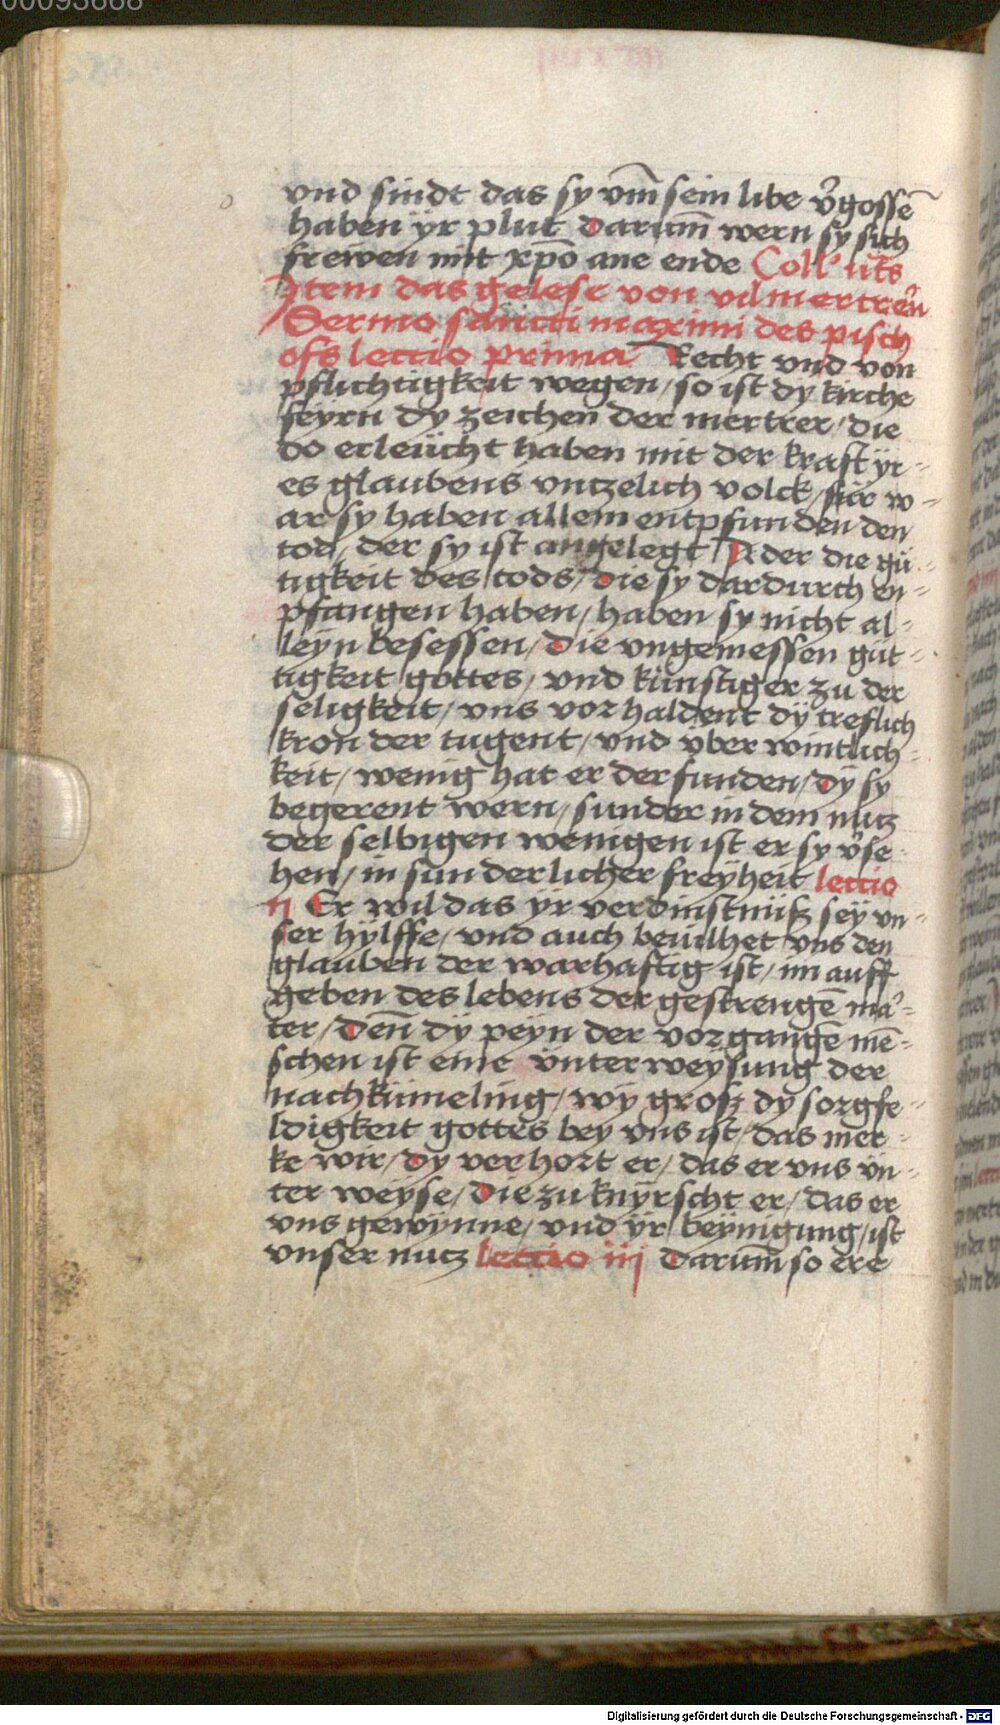 00093668
vnd sindt das sy vm̄ sein libe v̉gossē
haben ÿr plut Darum̄ wern sy sich
frewen mit xp̄o ane ende Coll' ut s
Item das gelese von vil mertrern̄
Sermo sancti maximi des pisch
ofs lectio prima Recht vnd von
pflichtigkeit wegen / so ist dy kirche
feyrn dy zeichen der mertrer / die
do erleücht haben mit der kraft ÿr-
es glaubens vntzelich volck / fur w-
ar sy haben allein entpfunden den
tod / der sy ist angelegt / Ader die gü-
tigkeit des tods / die sy dardurch en-
pfangen haben / haben sy nicht al-
leyn besessen / Die vngemessen güt-
tigkeit gottes / vnd künstiger zu der
seligkeit / vns vor haldent dÿ treflich
kron der tugent / vnd vber wintlich-
keit / wenig hat er der funden / dÿ sy
begerent wern / sunder in dem nutz
der selbigen wenigen ist er sy v̉se
hen / in sunderlicher freyheit lectio
ij Er wil das ÿr verdinstnüß seÿ vn-
ser hÿlffe / vnd auch beuilhet vns den
glauben der warhaftig ist / im auff
geben des lebens der gestrengē ma'-
ter / Den̄ dÿ peyn der vorgangē mē-
schen ist eine vnterweysung der
nachkümeling / wÿ groß dy sorgfe-
ldigkeit gottes bey vns ist / das mer-
ke wir / dy verhort er / das er vns vn-
ter weyse / Die zu knÿrscht er / das er
vns gewÿnne / vnd ÿr beÿnigung / ist
vnser nutz lectio iij Darum̄ so ere
Digitalisierung gefördert durch die Deutsche Forschungsgemeinschaft - DFG